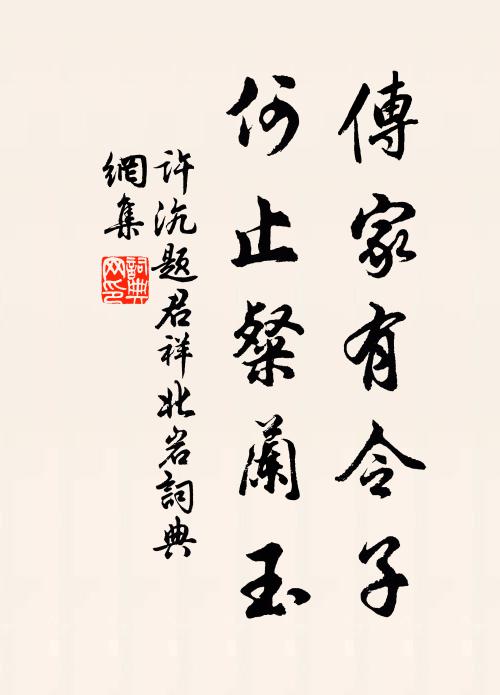 傳家有令子
何止粲蘭玉
许沆题君祥北岩詞典
網集
詞典
网印